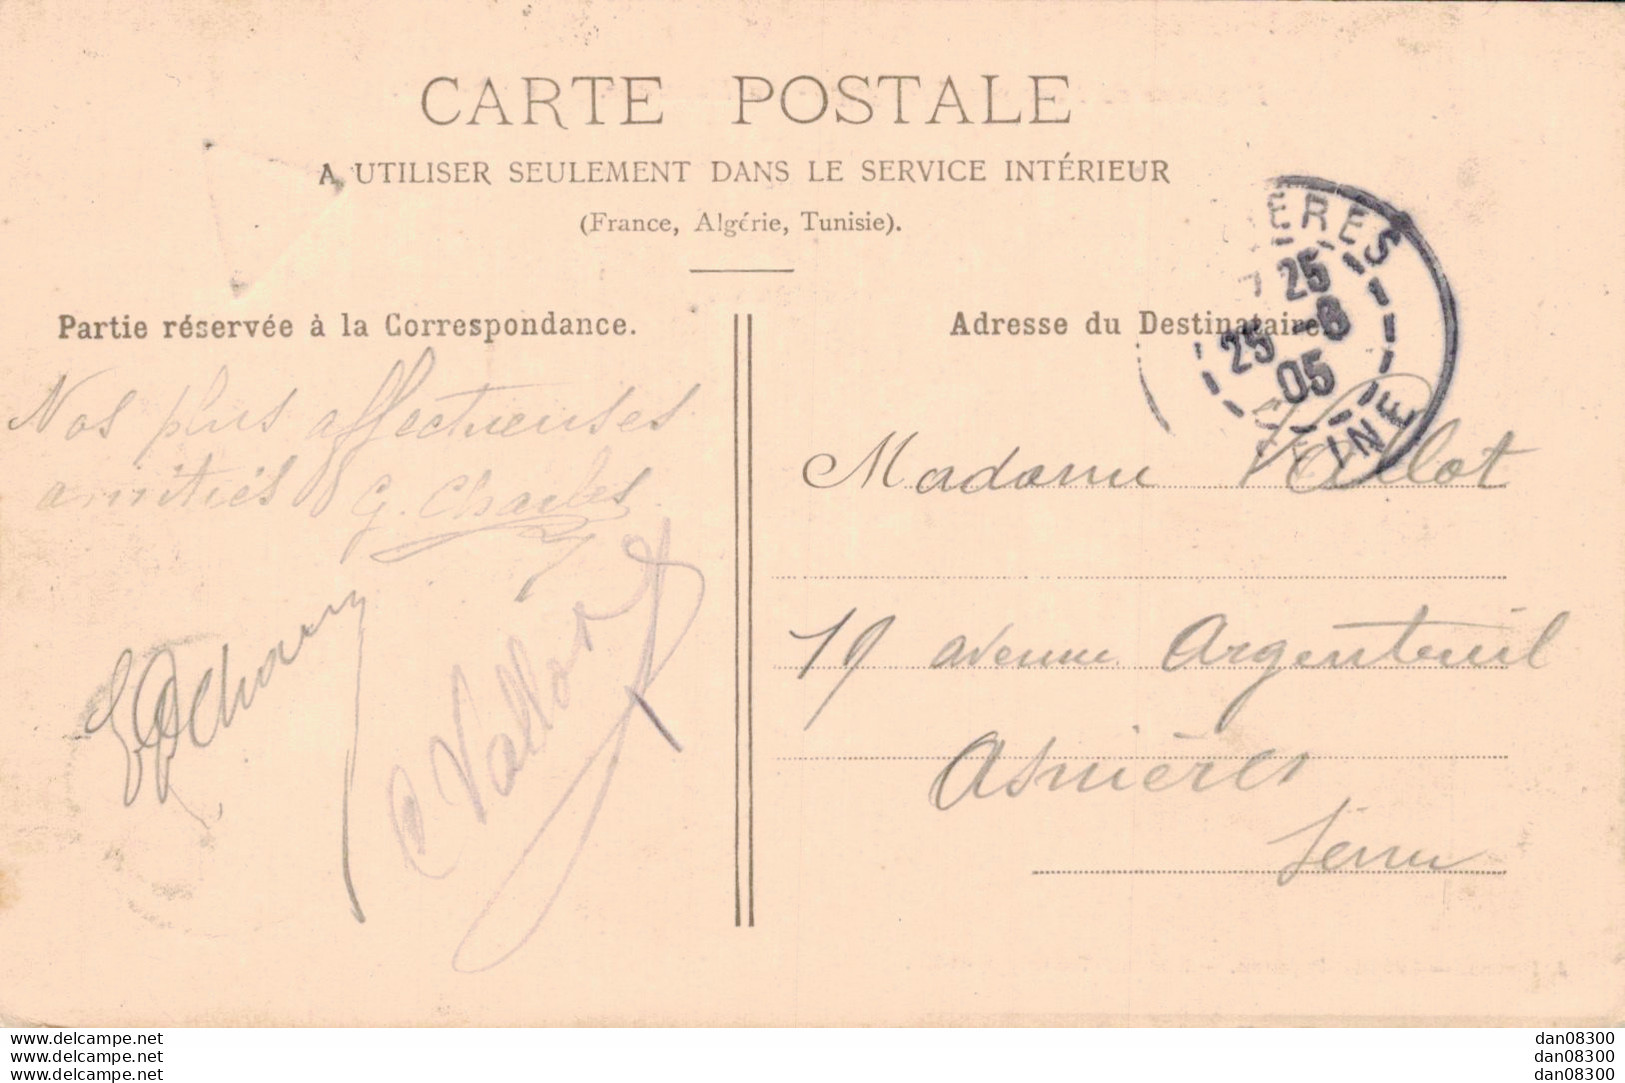 CARTE POSTALE
A UTILISER SEULEMENT DANS LE SERVICE INTÉRIEUR
(France, Algérie, Tunisie).
Partie réservée à la Correspondance.
Nos plus affectueuses
amitiés G. Charles
Vallot
Adresse du Destinataire
ERES
25
25 -8
05
SEINE
Madame Vallot
19 avenue Argenteuil
Asnières
Seine
www.delcampe.net
www.delcampe.net
www.delcampe.net
dan08300
dan08300
dan08300